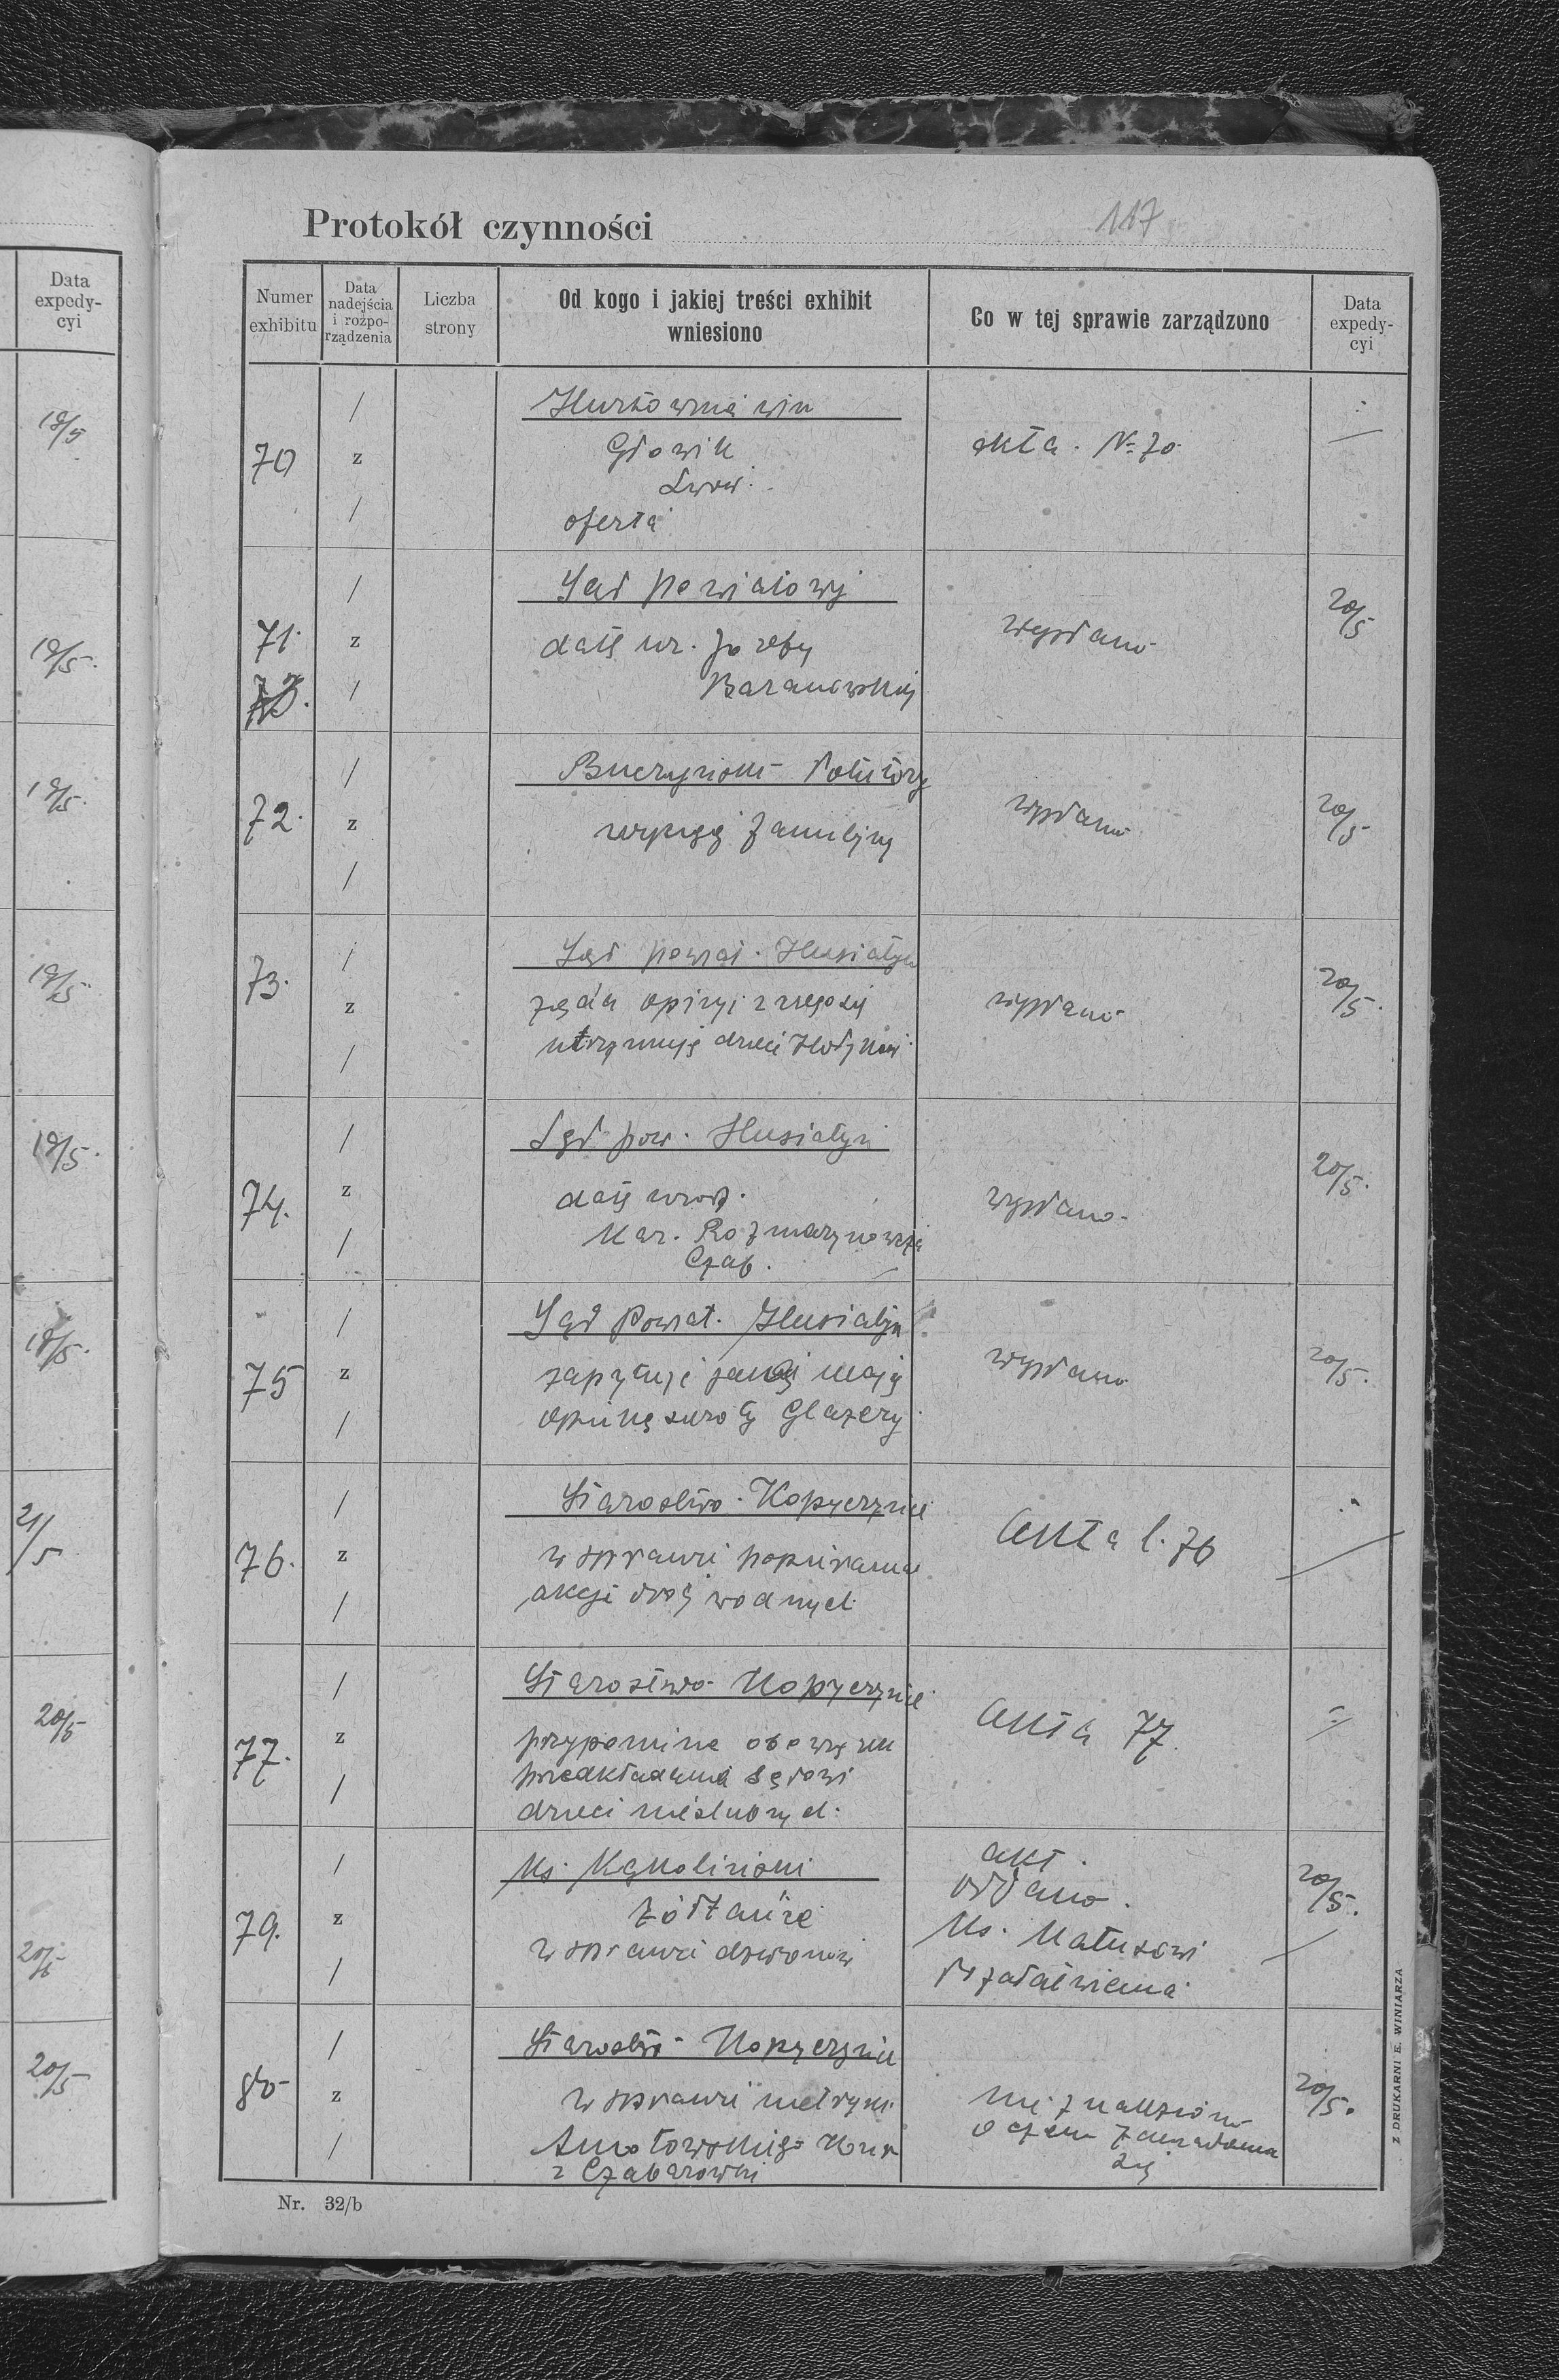 Data
expedy-
cyi
18/5
19/5.
19/5.
19/5.
19/5.
18/5.
21/5
20/5
20/5
20/5
Protokół czynności 117
Numer
exhibitu
Data
nadejścia
i rozpo-
rządzenia
Liczba
strony
Od kogo i jakiej treści exhibit
wniesiono
Co w tej sprawie zarządzono
Data
expedy-
cyi
70
z
Hurtownia win
Lwow.
oferta
akta. No 70
71.
z
Sąd powiatowy
datę ur. Józefy
Baranowskiej
wysłano
20/5
72.
z
familijny
wysłano
20/5
73.
z
Sąd powiat. Husiatyn
utrzymują dzieci
wysłano
20/5.
74.
z
Sąd pow. Husiatyn
datę urodz.
Mar. Rozmarynowicz
Czab.
wysłano
20/5.
75
z
Sąd Powiat. Husiatyn
zapytuje jaką mają
opinię Glazery
wysłano
20/5.
76.
z
Starostwo Kopyczynce
w sprawie popierania
akcji dróg wodnych
akta l. 76
77.
z
Starostwo Kopyczynce
przypomina obowiązek
przedkładania Sądowi
dzieci nieślubnych.
akta 77
79.
z
Ks.
Żółtańce
w sprawie dzwonów
akt.
oddano.
Ks. Matusowi
do załatwienia
20/5.
80
z
Starostwo Kopyczynce
w sprawie metryki
z Czabarówki
nie znaleziono
o czem zawiadomia
się
20/5.
Nr. 32/b
Z DRUKARNI E. WINIARZA